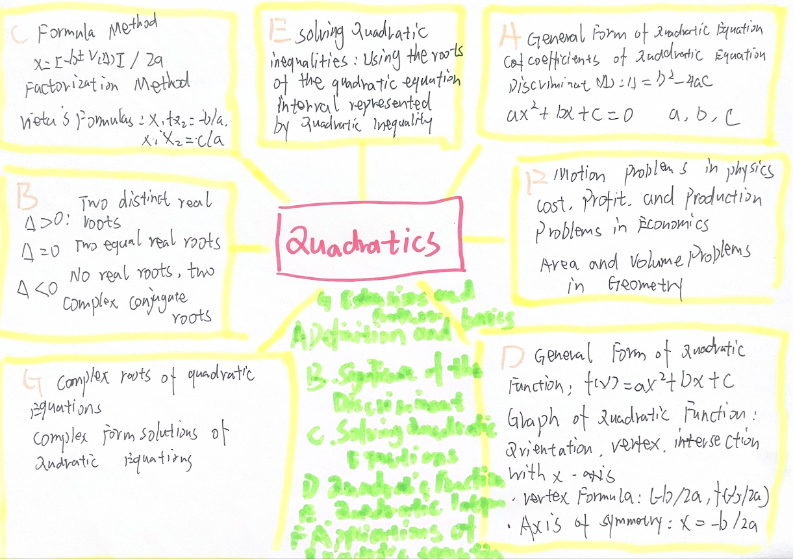 C Formula Method
x=[-b±√(Δ)]/2a
Factorization Method
Vieta's Formulas: x₁+x₂=-b/a.
x₁x₂=c/a
E solving Quadratic
inequalities: Using the roots
of the quadratic equation
Interval represented
by Quadratic Inequality
A General Form of Quadratic Equation
coefficients of Quadratic Equation
Discriminat
=b²-4ac
ax²+bx+c=0 a, b, c
B Two distinct real
Δ>0: roots
Δ=0 Two equal real roots
Δ<0 No real roots, two
complex conjugate
roots
Quadratics
Motion problems in physics
cost, Profit, and Production
Problems in Economics
Area and Volume Problems
in Geometry
G Complex roots of quadratic
Equations
complex form solutions of
Equations
G Extensions and
basics
A Definition and
B. of the
Discriminant
C. Solving Quadratic
Equations
D Quadratic Function
E Quadratic
F Applications of
D General Form of Quadratic
Function, f(x)=ax²+bx+c
Graph of Quadratic Function:
Orientation, vertex, intersection
with x-axis
· Vertex Formula: (-b/2a, f(-b/2a)
· Axis of symmetry: x=-b/2a